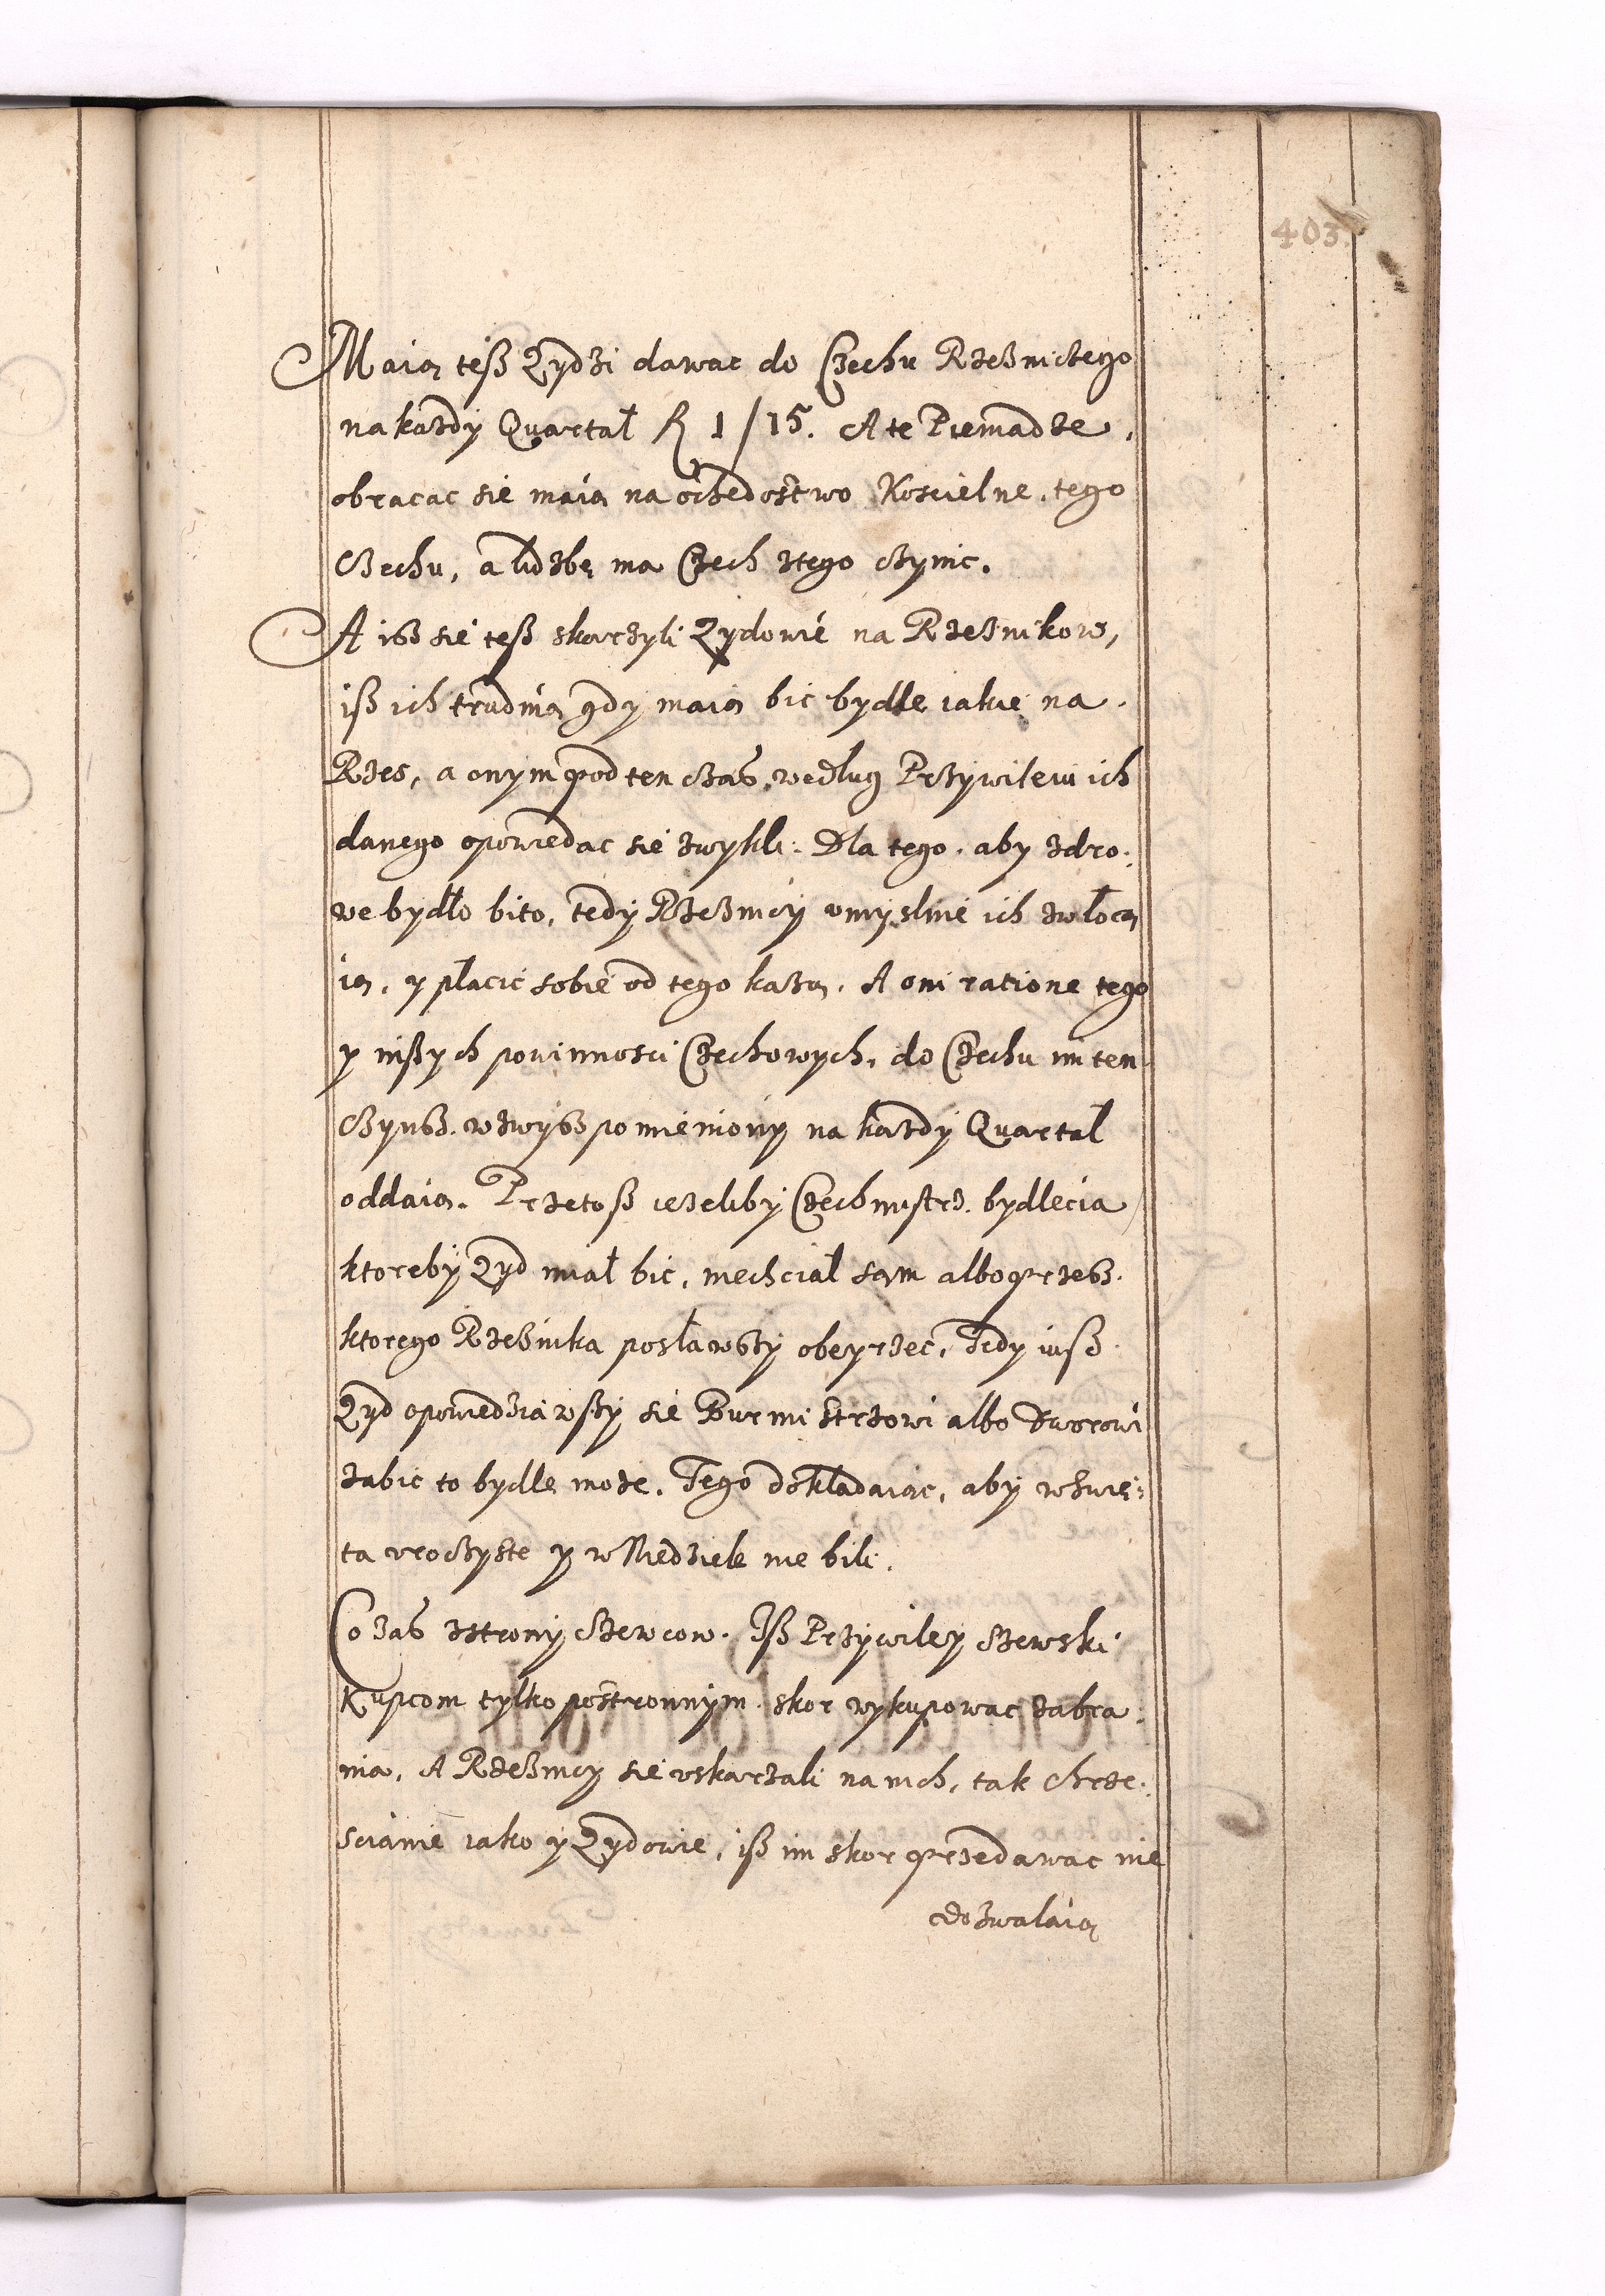 403
Maią teß Zydzi dawac do Czechu Rzeznickego
na kazdy Quartal fl 1/15. A te Pieniadze,
obracac sie maią na ochedostwo Koscielne, tego
Czechu, a liczbę ma Czech ztego czynic.
A isz sie teß skarzyli Zydowie na Rzeznikow,
iß ich trudnią gdy maią bic bydle iakie na
Rzes, a onym pod ten czas, według Przywileiu ich
danego opowiedac sie zwykli. Dla tego, aby zdro:
we bydło bito, tedy Rzeznicy umyslnie ich zwłocą
ią, y płacic sobie od tego kazą. A oni ratione tego
y inßych powinnosci Czechowych, do Czechu im ten
czynsz, wzwysz pomieniony na kazdy Quartał
oddaią. Przetoß iezeliby Czechmistrz, bydlecia
ktoreby Zyd miał bic, niechciał sąm albo przesz
ktorego Rzeznika posławszy obeyrzec, Tedy iuß
Zyd opowiedziawßy sie Burmistrzowi albo Dworowi
zabic to bydle moze. Tego dokładaiąc, aby w Swię:
ta uroczyste y w Niedziele nie bili.
Co zas zstrony Szewcow. Iß Przywiley Szewski
Kupcom tylko postronnym skor wykupowac zabra:
nia, A Rzeznicy sie uskarzali na nich, tak Chrze:
scianie iako y Zydowie, iß im skor przedawac nie
dozwalaią